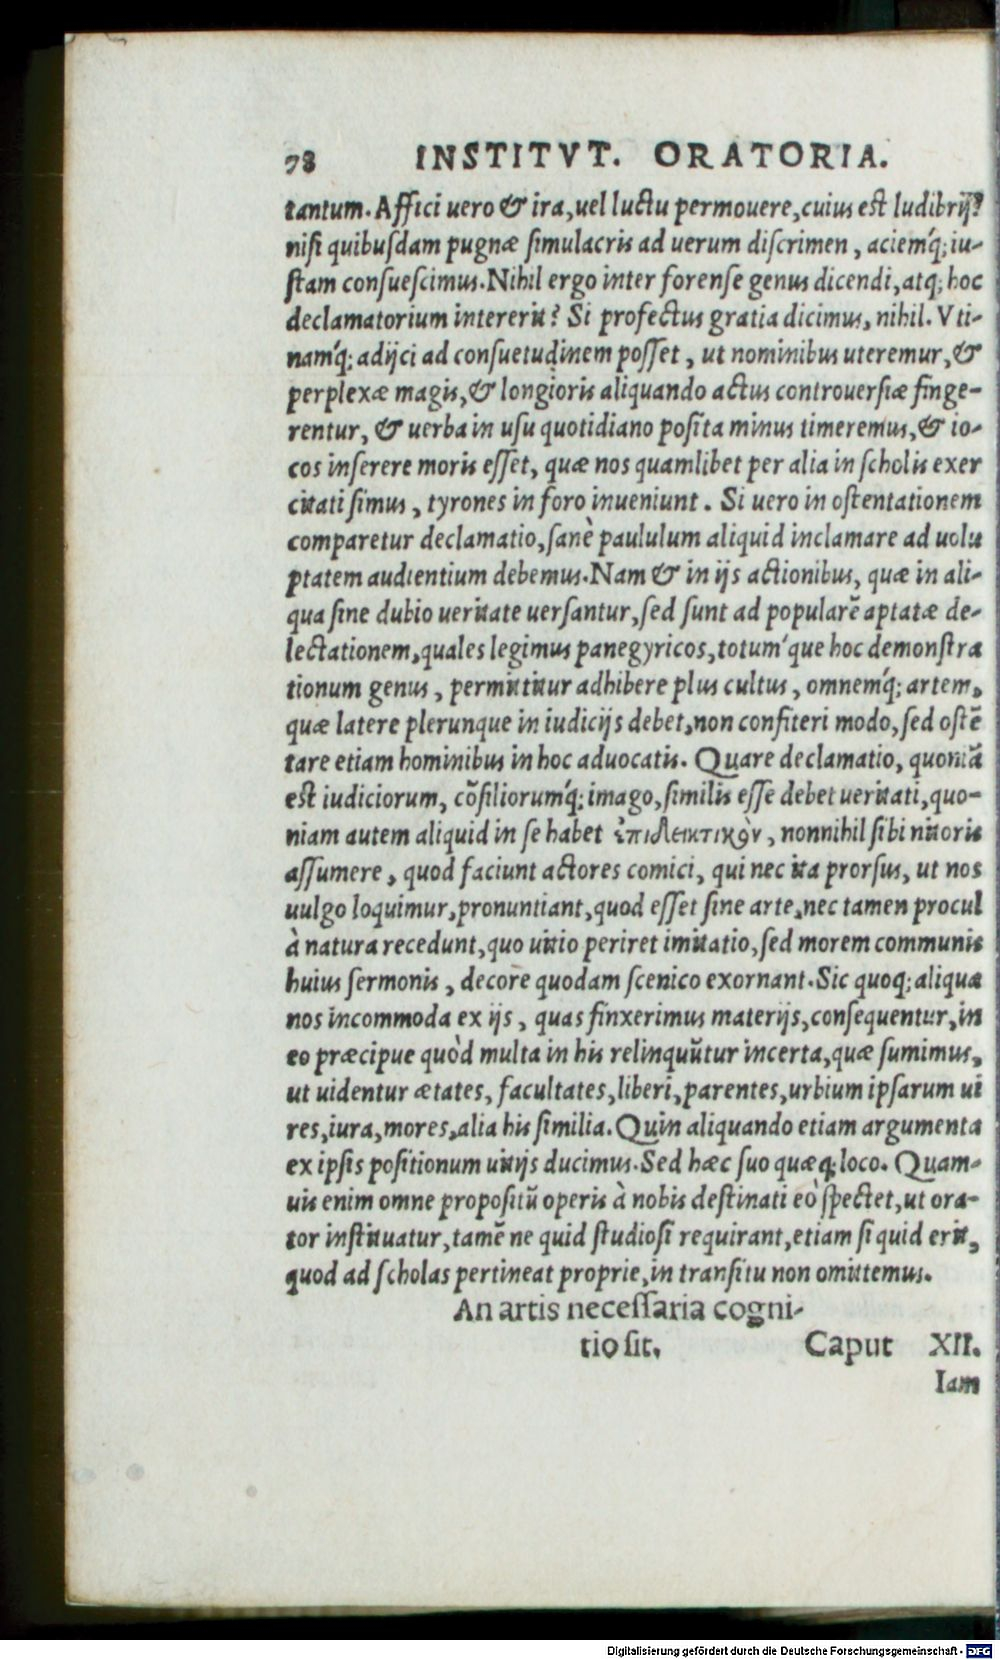 78 INSTITVT. ORATORIA.
tantum. Affici uero & ira, uel luctu permouere, cuius est ludibrij?
nisi quibusdam pugnæ simulacris ad uerum discrimen, aciemq́; iu-
stam consuescimus. Nihil ergo inter forense genus dicendi, atq; hoc
declamatorium intererit? Si profectus gratia dicimus, nihil. Vti-
namq́; adijci ad consuetudinem posset, ut nominibus uteremur, &
perplexæ magis, & longioris aliquando actus controuersiæ finge-
rentur, & uerba in usu quotidiano posita minus timeremus, & io-
cos inserere moris esset, quæ nos quamlibet per alia in scholis exer
citati simus, tyrones in foro inueniunt. Si uero in ostentationem
comparetur declamatio, sanè paululum aliquid inclamare ad uolu
ptatem audientium debemus. Nam & in ijs actionibus, quæ in ali-
qua sine dubio ueritate uersantur, sed sunt ad popularē aptatæ de-
lectationem, quales legimus panegyricos, totum´que hoc demonstra
tionum genus, permittitur adhibere plus cultus, omnemq́; artem,
quæ latere plerunque in iudicijs debet, non confiteri modo, sed ostē
tare etiam hominibus in hoc aduocatis. Quare declamatio, quoniā
est iudiciorum, cōsiliorumq́; imago, similis esse debet ueritati, quo-
niam autem aliquid in se habet ἐπιδεικτικὸν, nonnihil sibi nitoris
assumere, quod faciunt actores comici, qui nec ita prorsus, ut nos
uulgo loquimur, pronuntiant, quod esset sine arte, nec tamen procul
à natura recedunt, quo uitio periret imitatio, sed morem communis
huius sermonis, decore quodam scenico exornant. Sic quoq; aliqua
nos incommoda ex ijs, quas finxerimus materijs, consequentur, in
eo præcipue quòd multa in his relinquūtur incerta, quæ sumimus,
ut uidentur ætates, facultates, liberi, parentes, urbium ipsarum ui
res, iura, mores, alia his similia. Quin aliquando etiam argumenta
ex ipsis positionum uitijs ducimus. Sed hæc suo quæq; loco. Quam-
uis enim omne propositū operis à nobis destinati eò spectet, ut ora-
tor instituatur, tamē ne quid studiosi requirant, etiam si quid erit,
quod ad scholas pertineat proprie, in transitu non omittemus.
An artis necessaria cogni-
tio sit. Caput XII.
Iam
Digitalisierung gefördert durch die Deutsche Forschungsgemeinschaft - DFG